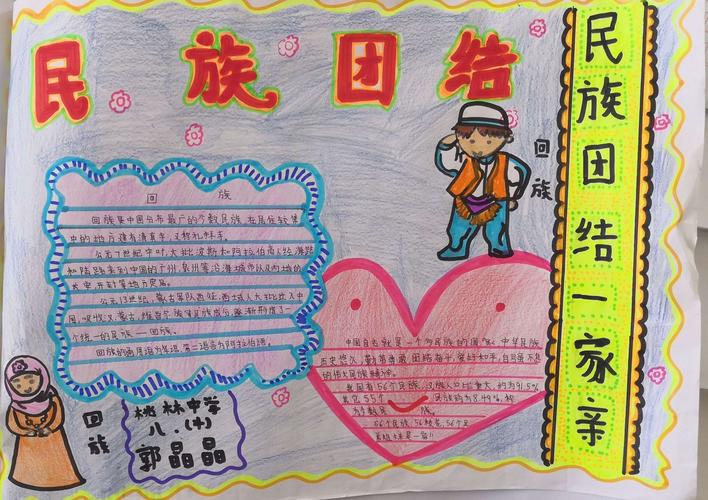 民族团结
民族团结一家亲
回族
回族
回族是中国分布最广的少数民族,在居住较集
中的地方建有清真寺,又称礼拜寺。
公元7世纪中叶,大批波斯和阿拉伯商人经海路
和陆路来到中国的广州、泉州等沿海城市以及内地的
长安、开封等地方定居。
公元13世纪,蒙古军队西征,西域人大批迁入中
国,吸收汉、蒙古、维吾尔族等民族成分,逐渐形成了一
个统一的民族——回族。
回族的通用语为汉语,第二语言为阿拉伯语。
中国自古就是一个多民族的国家。中华民族
历史悠久,勤劳勇敢,团结
的伟大民族精神。
我国有56个民族,汉族人口数量大,约为91.5%
其它55个 民族约为8.49%,称
为少数民族。
56个民族,56枝花,56个
是一家!!
回族
桃林中学
八.(十)
郭晶晶